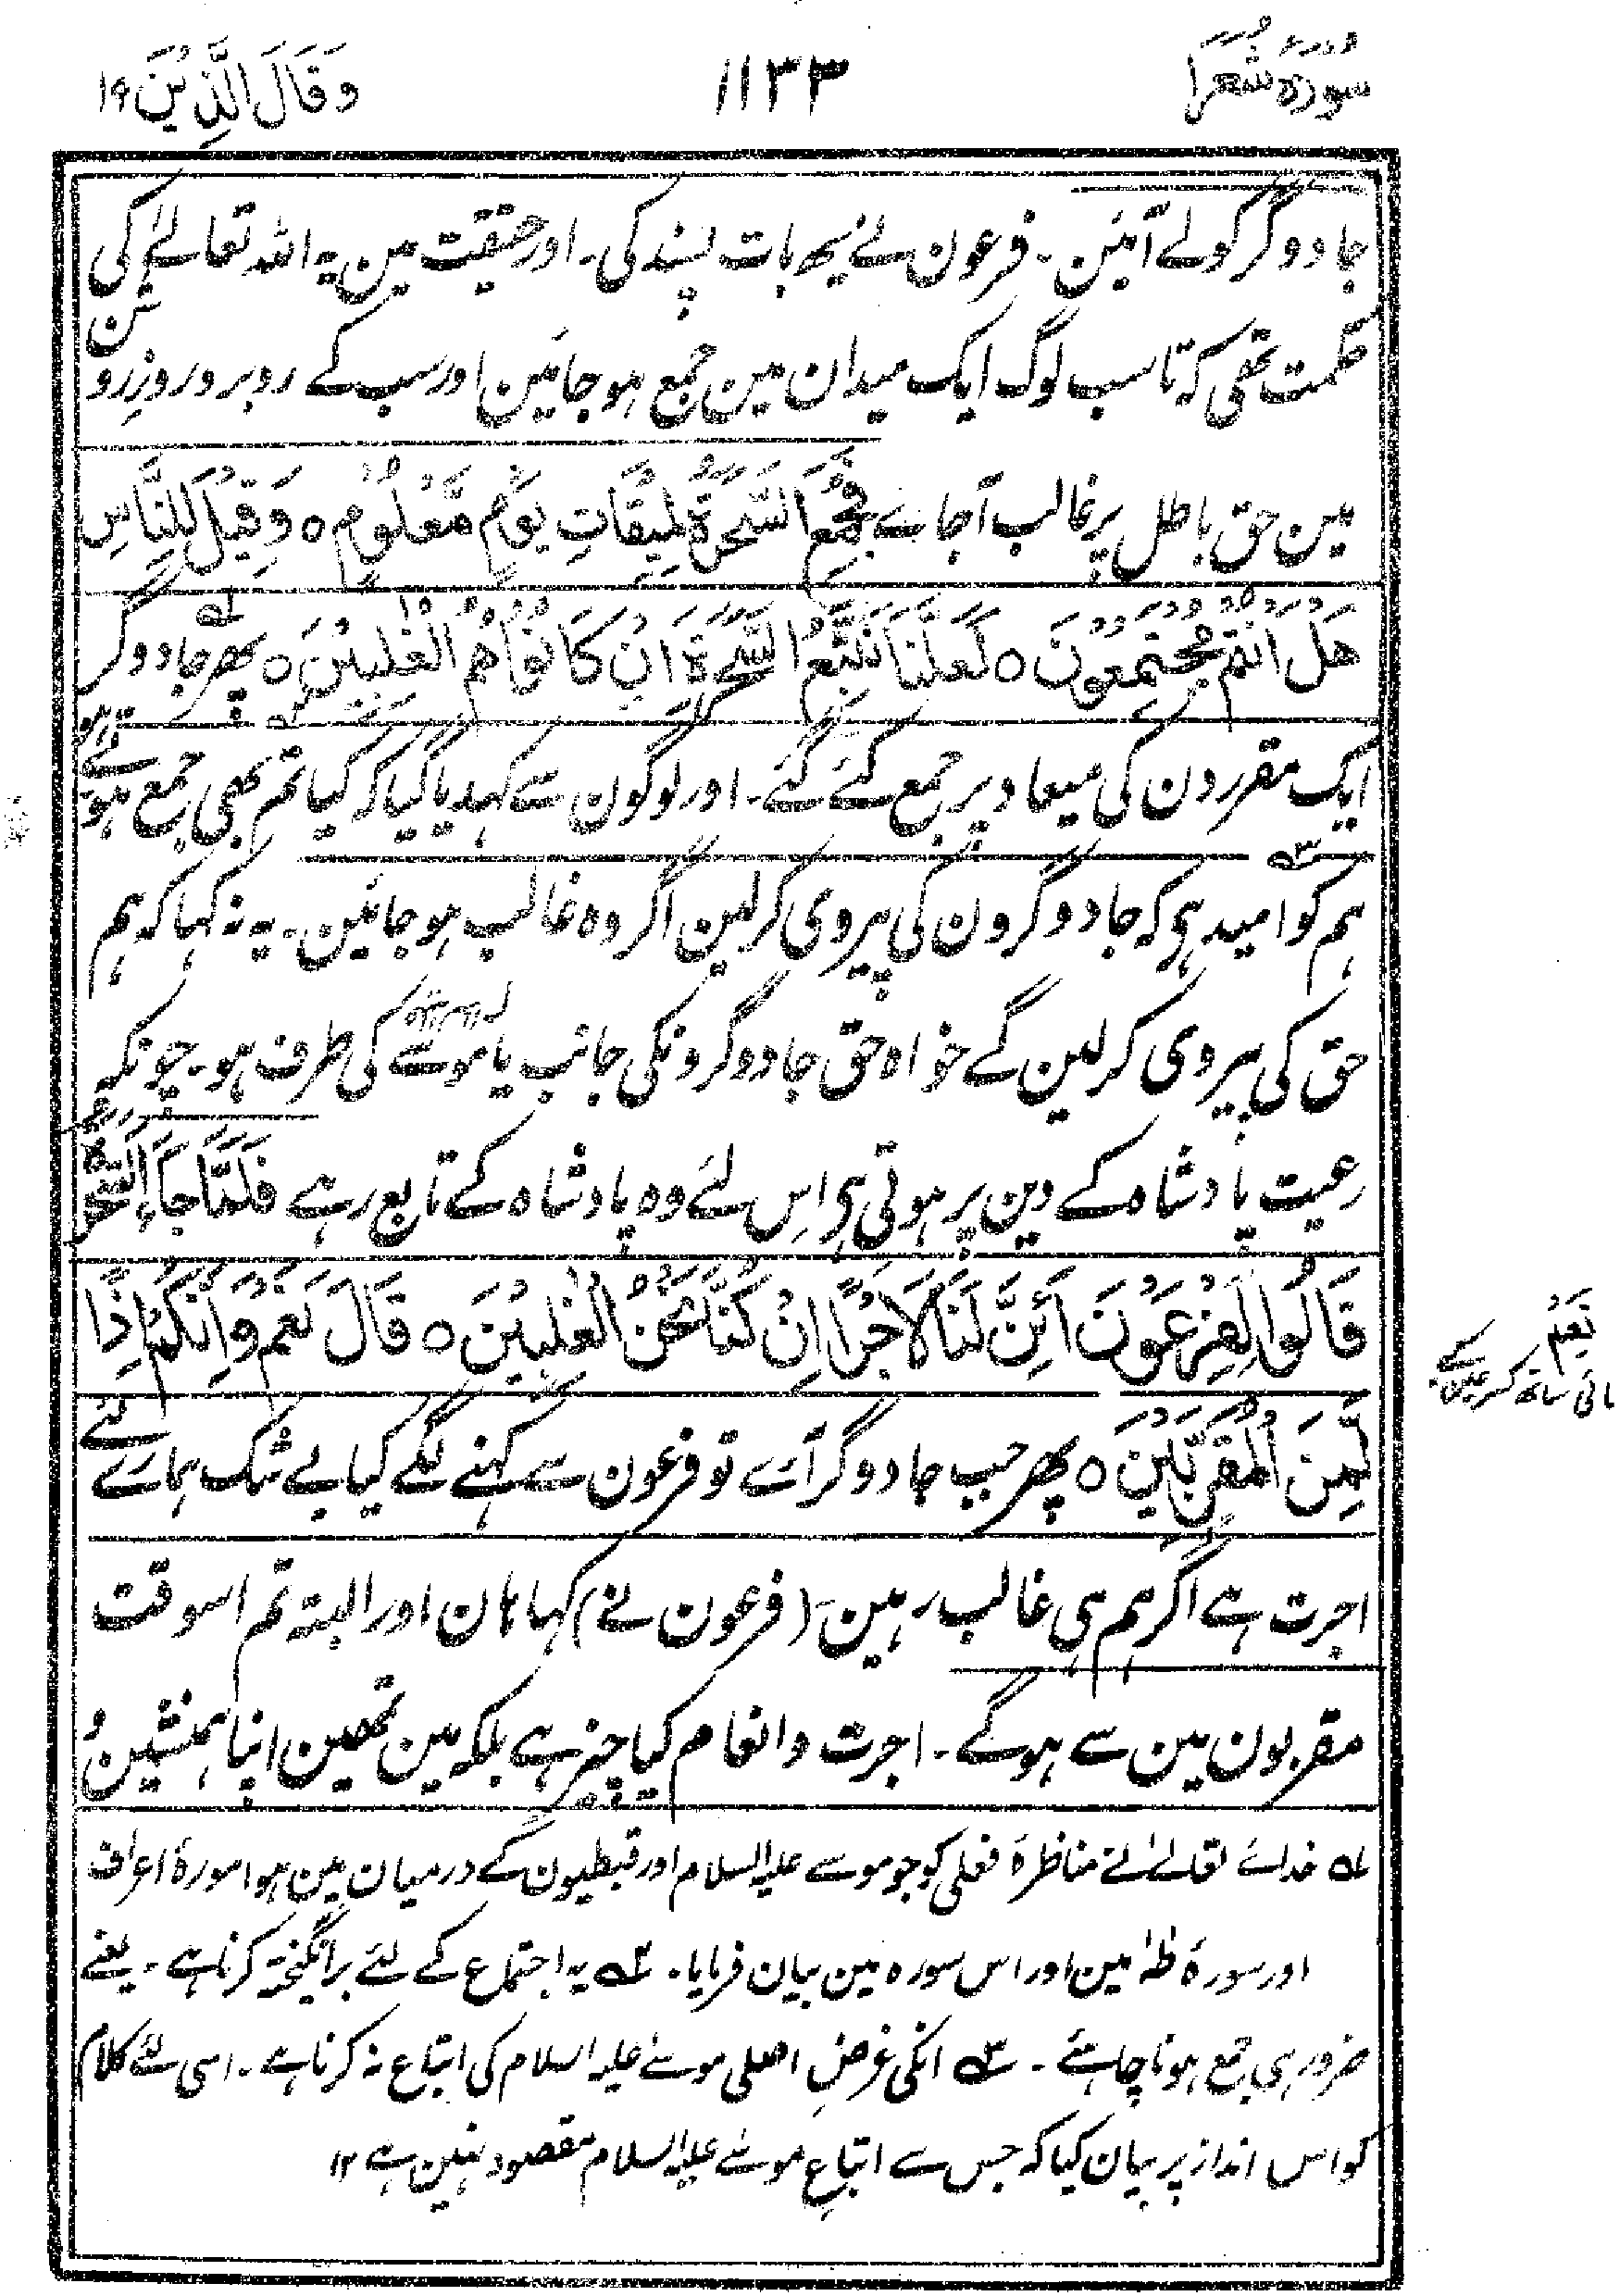 سورۃ شعرا
۱۱۳۳
وَقَالَ الَّذِیْنَ ۱۹
جادوگر کولے آئین۔ فرعون نے یھ بات پسند کی۔ اور حقیقت مین یہ اللہ تعالےٰ کی
حکمت تھی کہ تا سب لوگ ایک میدان مین جمع ہو جائین اور سب کے روبرو روز روشن
مین حق باطل پر غالب آجاے فَجُمِعَ السَّحَرَةُ لِمِیْقَاتِ یَوْمٍ مَّعْلُوْمٍ ۝ وَّقِیْلَ لِلنَّاسِ
هَلْ اَنْتُمْ مُّجْتَمِعُوْنَ ۝ لَعَلَّنَا نَتَّبِعُ السَّحَرَةَ اِنْ كَانُوْا هُمُ الْغٰلِبِیْنَ ۝ پھر جادوگر
ایک مقرر دن کی میعاد پر جمع کئے گئے۔ اور لوگون سے کہدیا گیا کہ کیا تم بھی جمع ہوتے
ہم کو امید ہی کہ جادوگرون کی پیروی کرلین اگر وہ غالب ہو جائین۔ یہ نہ کہا کہ ہم
حق کی پیروی کرلین گے خواہ حق جادوگرونکی جانب یا موسےٰ کی طرف ہو۔ چونکہ
رعیت پادشاہ کے دین پر ہوتی ہی اِس لئے وہ پادشاہ کے تابع رہے فَلَمَّا جَآءَ السَّحَرَةُ
قَالُوْا لِفِرْعَوْنَ اَئِنَّ لَنَا لَاَجْرًا اِنْ كُنَّا نَحْنُ الْغٰلِبِیْنَ ۝ قَالَ نَعَمْ وَاِنَّكُمْ اِذًا
نَعِمْ
لَّمِنَ الْمُقَرَّبِیْنَ ۝ پھر جب جادوگر آے تو فرعون سے کہنے لگے کیا بے شک ہمارے لئے
اجرت ہے اگر ہم ہی غالب رہین (فرعون نے) کہا ہان اور البتہ تم اسوقت
مقربون مین سے ہوگے۔ اجرت وانعام کیا چیز ہے بلکہ مین تمھین اپنا ہمنشین
۱؎ خداے تعالےٰ نے مناظرۂ فعلی کو جو موسے علیہ السلام اور قبطیون کے درمیان مین ہوا سورۂ اعراف
اور سورۂ طٰہٰ مین اور اس سورہ مین بیان فرمایا۔ ۲؎ یہ اجتماع کے لئے برانگیختہ کرنا ہے۔ یعنے
ضرور ہی جمع ہونا چاہئے۔ ۳؎ انکی غرضِ اصلی موسےٰ علیہ السلام کی اتباع نہ کرنا ہے۔ اسی لئے کلام
کو اس انداز پر بیان کیا کہ جس سے اتباعِ موسےٰ علیہ السلام مقصود نہین ہے ۱۲